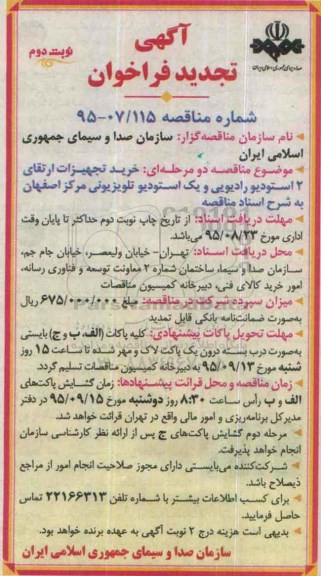 نوبت دوم
آگهی
تجدید فراخوان
شماره مناقصه ۹۵-۰۷/۱۱۵
نام سازمان مناقصه‌گزار: سازمان صدا و سیمای جمهوری
اسلامی ایران
موضوع مناقصه دو مرحله‌ای: خرید تجهیزات ارتقای
۲ استودیو رادیویی و یک استودیو تلویزیونی مرکز اصفهان
به شرح اسناد مناقصه
مهلت دریافت اسناد: از تاریخ چاپ نوبت دوم حداکثر تا پایان وقت
اداری مورخ ۹۵/۰۸/۲۳ می‌باشد.
محل دریافت اسناد: تهران- خیابان ولیعصر، خیابان جام جم،
سازمان صدا و سیما، ساختمان شماره ۲ معاونت توسعه و فناوری رسانه،
امور خرید کالای فنی، دبیرخانه کمیسیون مناقصات
میزان سپرده شرکت در مناقصه: مبلغ ۶۷۵/۰۰۰/۰۰۰ ریال
به‌صورت ضمانت‌نامه بانکی قابل تمدید
مهلت تحویل پاکات پیشنهادی: کلیه پاکات (الف، ب و ج) بایستی
به‌صورت درب بسته درون یک پاکت لاک و مهر شده تا ساعت ۱۵ روز
شنبه مورخ ۹۵/۰۹/۱۳ به دبیرخانه کمیسیون مناقصات تسلیم گردد.
زمان مناقصه و محل قرائت پیشنهادها: زمان گشایش پاکت‌های
الف و ب رأس ساعت ۸:۳۰ روز دوشنبه مورخ ۹۵/۰۹/۱۵ در دفتر
مدیرکل برنامه‌ریزی و امور مالی واقع در تهران قرائت خواهد شد.
مرحله دوم گشایش پاکت‌های ج پس از ارائه نظر کارشناسی سازمان
انجام خواهد پذیرفت.
شرکت‌کننده می‌بایستی دارای مجوز صلاحیت انجام امور از مراجع
ذیصلاح باشد.
برای کسب اطلاعات بیشتر با شماره تلفن ۲۲۱۶۶۳۱۳ تماس
حاصل فرمایید.
بدیهی است هزینه درج ۲ نوبت آگهی به عهده برنده خواهد بود.
سازمان صدا و سیمای جمهوری اسلامی ایران